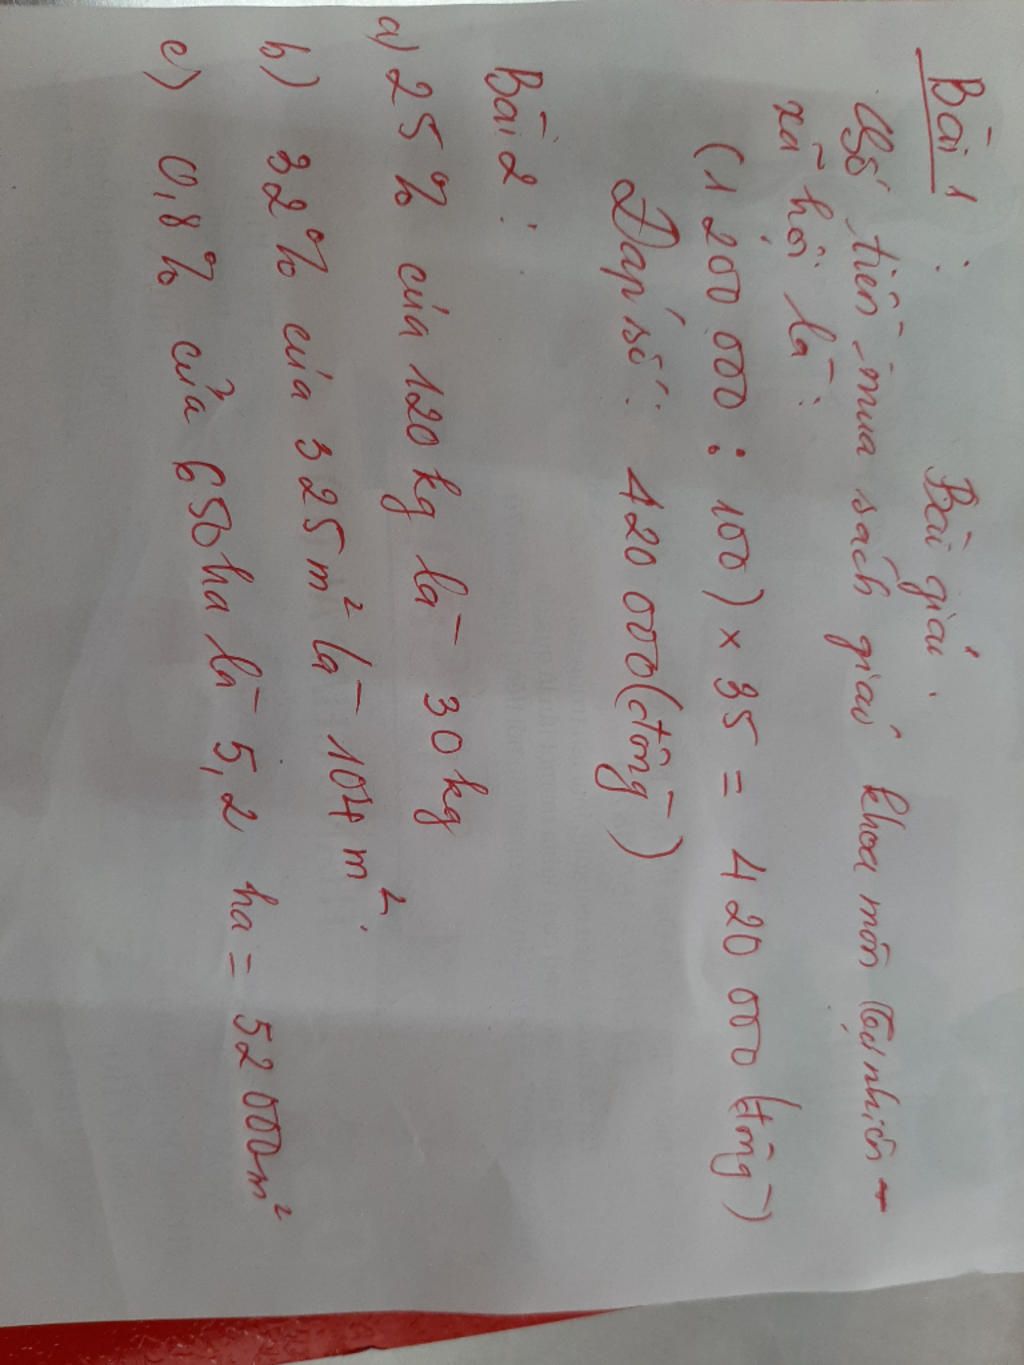 Bài 1:
Bài giải.
Số tiền mua sách giáo khoa môn tự nhiên -
xã hội là:
(1 200 000 : 100) × 35 = 420 000 (đồng)
Đáp số: 420 000 (đồng)
Bài 2:
a) 25% của 120 kg là 30 kg
b) 32% của 325 m² là 104 m².
c) 0,8% của 650 ha là 5,2 ha = 52 000 m²